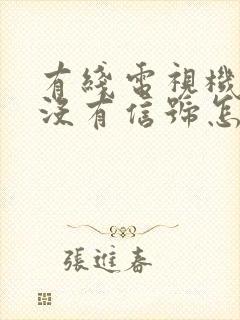 有綫電視機
沒有信號怎
張進春